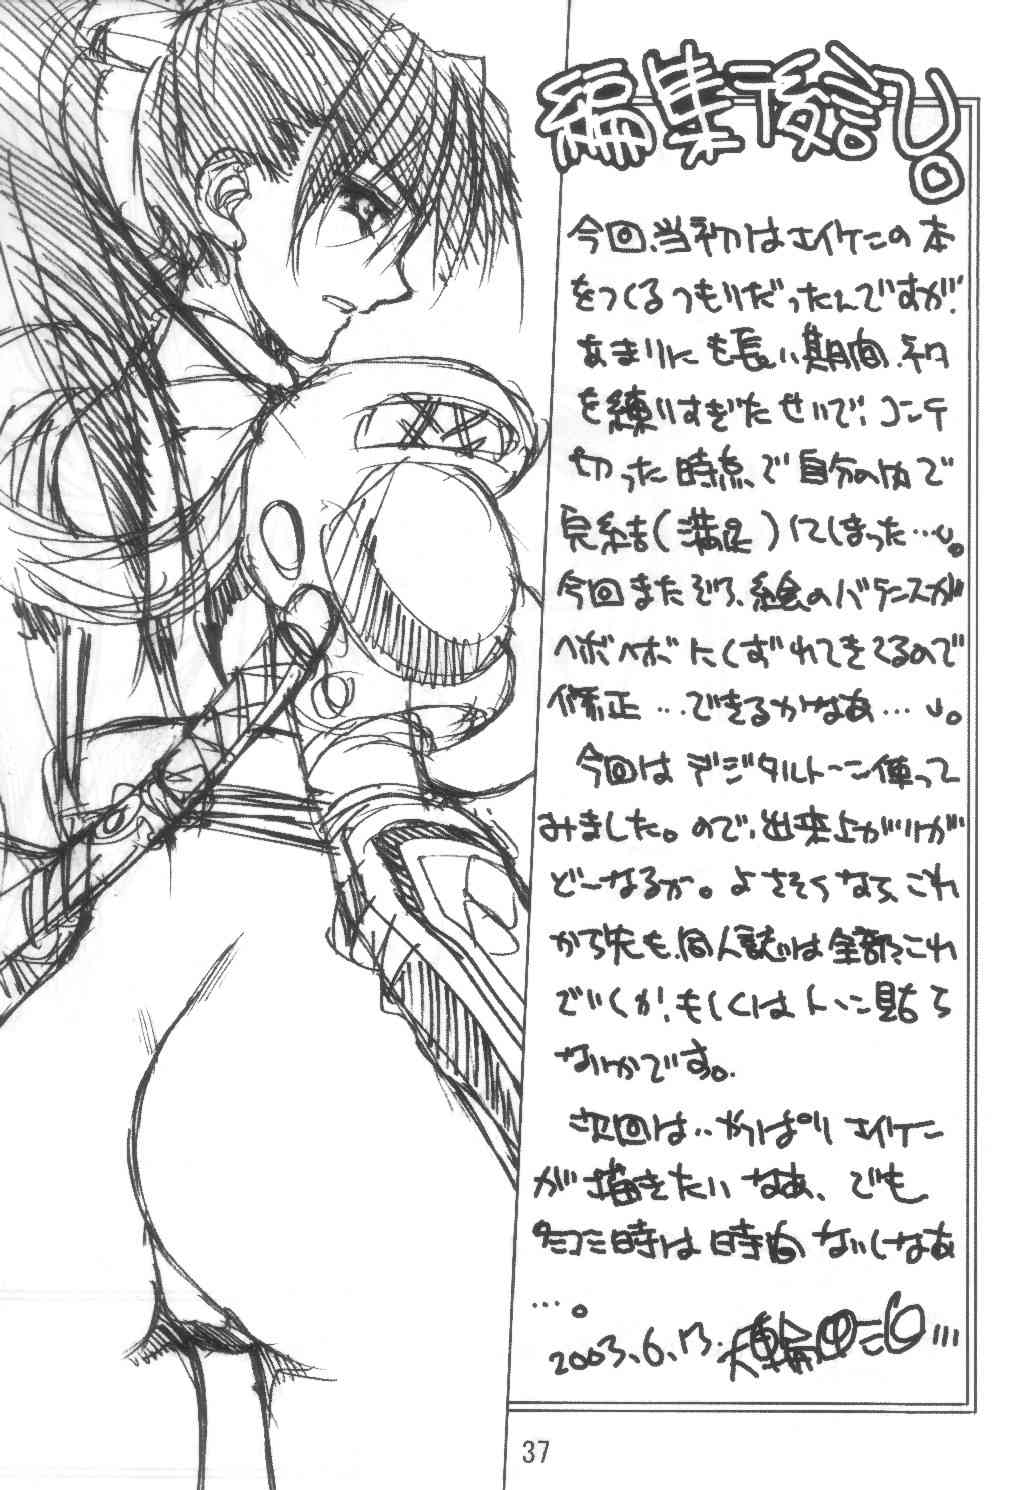 編集後記。
今回、当初はエイケンの本
をつくるつもりだったんですが!
あまりにも長い期間、ネタ
を練りすぎたせいで、コンテ
切った時点で自分の内で
完結(満足)してしまった…。
今回またぞろ、絵のバランスが
ヘボヘボにくずれてきてるので
修正…できるかなあ…。
今回はデジタルトーン使って
みました。ので、出来上がりが
どーなるか。よさそうなら、これ
から先も、同人誌は全部これ
でいくか!もしくはトーン貼ら
ないかです。
次回は‥やっぱりエイケン
が描きたいなあ、でも
夕コミ時は時間ないしなあ
…。
2003.6.13.
37